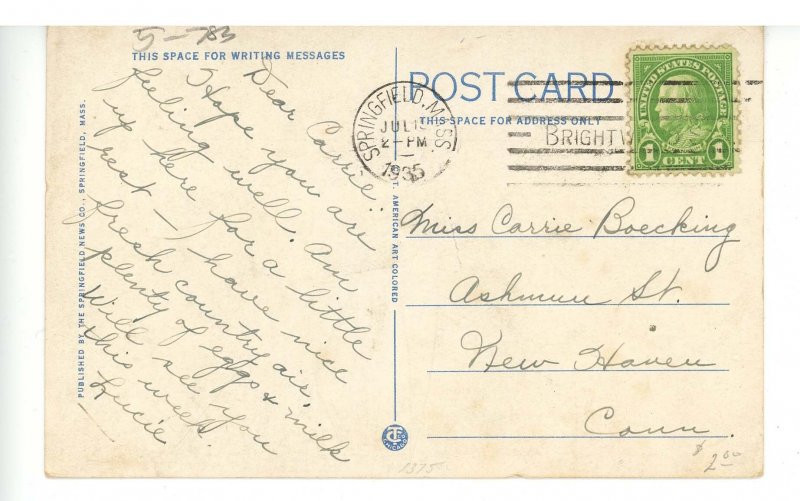 5-783
THIS SPACE FOR WRITING MESSAGES
Dear Carrie:
Hope you are
feeling well. Am
up here for a little
rest - I have nice
fresh country air,
plenty of eggs & milk
Will see you
this week.
Lucie
PUBLISHED BY THE SPRINGFIELD NEWS CO., SPRINGFIELD, MASS.
T. AMERICAN ART COLORED
POST CARD
THIS SPACE FOR ADDRESS ONLY
SPRINGFIELD, MASS
JUL 1
2-PM
1935
BRIGHTW
UNITED STATES POSTAGE
1 CENT 1
Miss Carrie Boecking
Ashmun St.
New Haven
Conn.
1375
$2.00